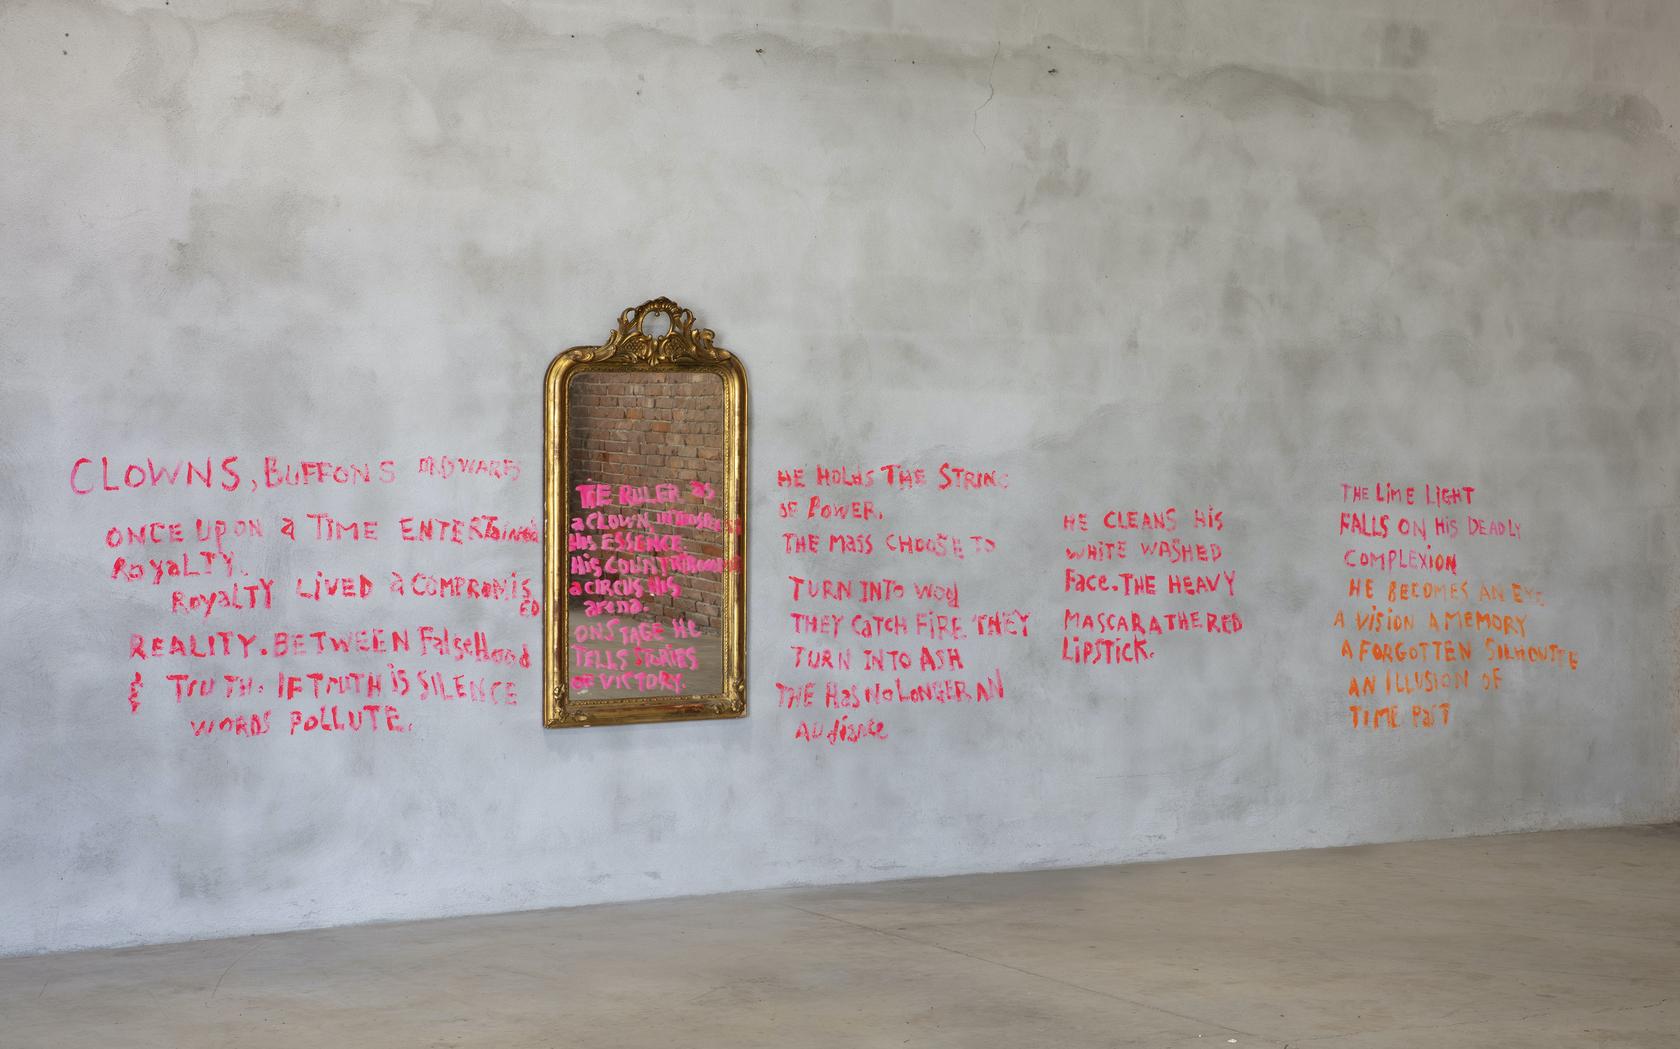 CLOWNS, BUFFONS AND DWARFS
ONCE UPON a TIME ENTERTained
RoyaLTY.
RoyaLTY LiVED a COMPROMIS
ED
REALITY. BETWEEN FalseHood
& TRUTH. IF TRUTH iS SILENCE
WORDS POLLUTE.
THE RULER as
a CLOWN
His ESSENCE
His COUNTRY
a CIRCUS His
arena.
ON STAGE HE
TELLS STORIES
OF VICTORY.
HE HOLdS THE STRING
OF POWER.
THE MaSS CHOOSE TO
TURN INTO
THEY CaTCH FiRE. THEY
TURN INTO ASH
THE HaS No LONGER AN
AUdience
HE CLEANS HiS
WHITE WASHED
Face. THE HEAVY
MASCARA THE RED
LipSTiCK.
THE LiME LiGHT
FALLS ON HiS DEADLY
COMPLEXiON
HE BECOMES AN EYE
A ViSiON A MEMORY
A FORGOTTEN SiLHOUTTE
AN ILLUSION OF
TiME PaST